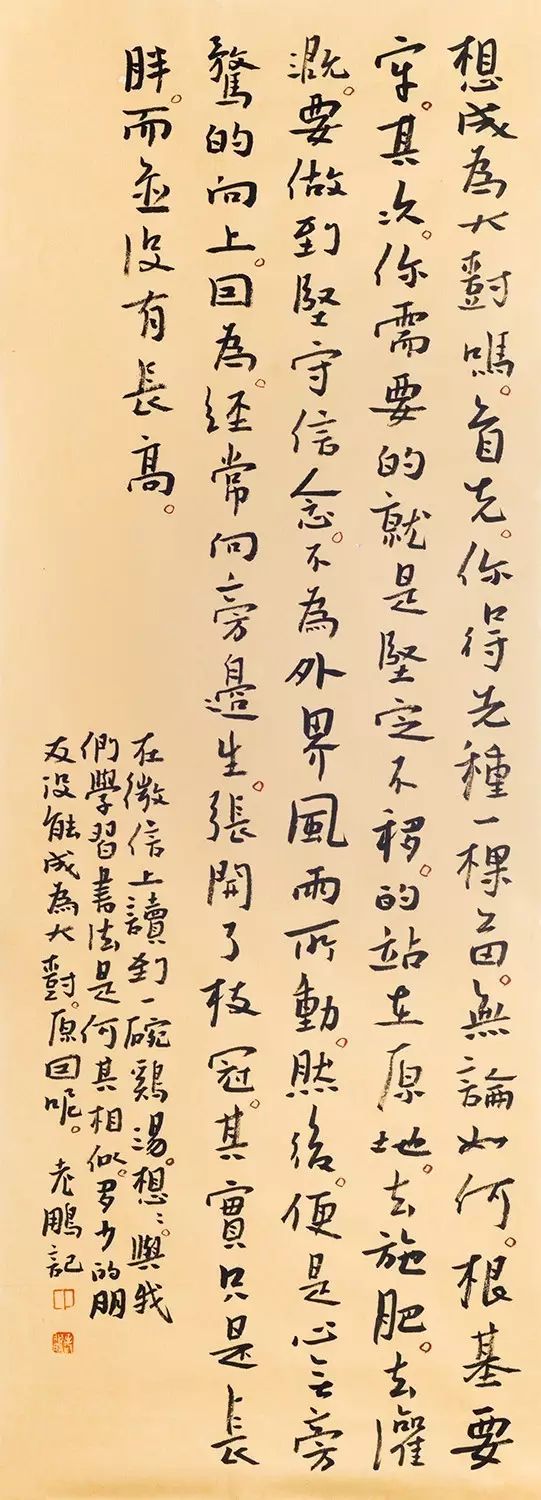 想成為大樹嗎。首先。你得先種一棵苗。無論如何。根基要
牢。其次。你需要的就是堅定不移。的站在原地。去施肥。去灌
溉。要做到堅守信念。不為外界風雨所動。然後。便是心无旁
驁的向上。因為。經常向旁邊生。張開了枝冠。其實只是長
胖。而並没有長高。
在微信上讀到一碗鷄湯。想〻。與我
們學習書法是何其相似。多少的朋
友没能成為大樹。原因呢。老鵬記